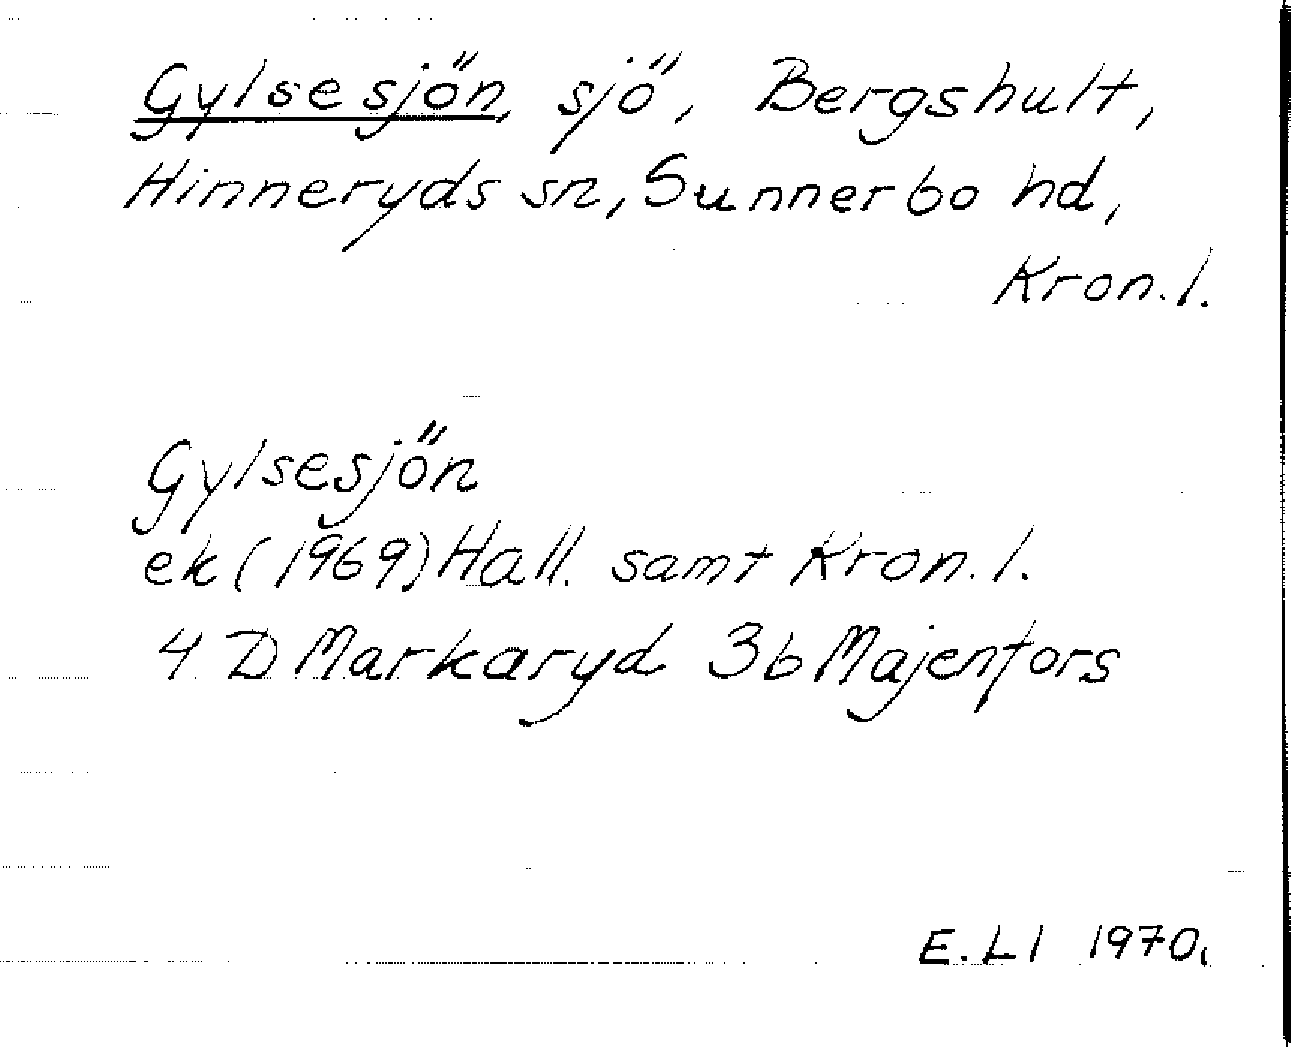 Gylsesjön, sjö, Bergshult,
Hinneryds sn, Sunnerbo hd,
Kron.l.
Gylsesjön
ek (1969) Hall. samt Kron.l.
4 D Markaryd 3b Majenfors
E.Ll 1970.